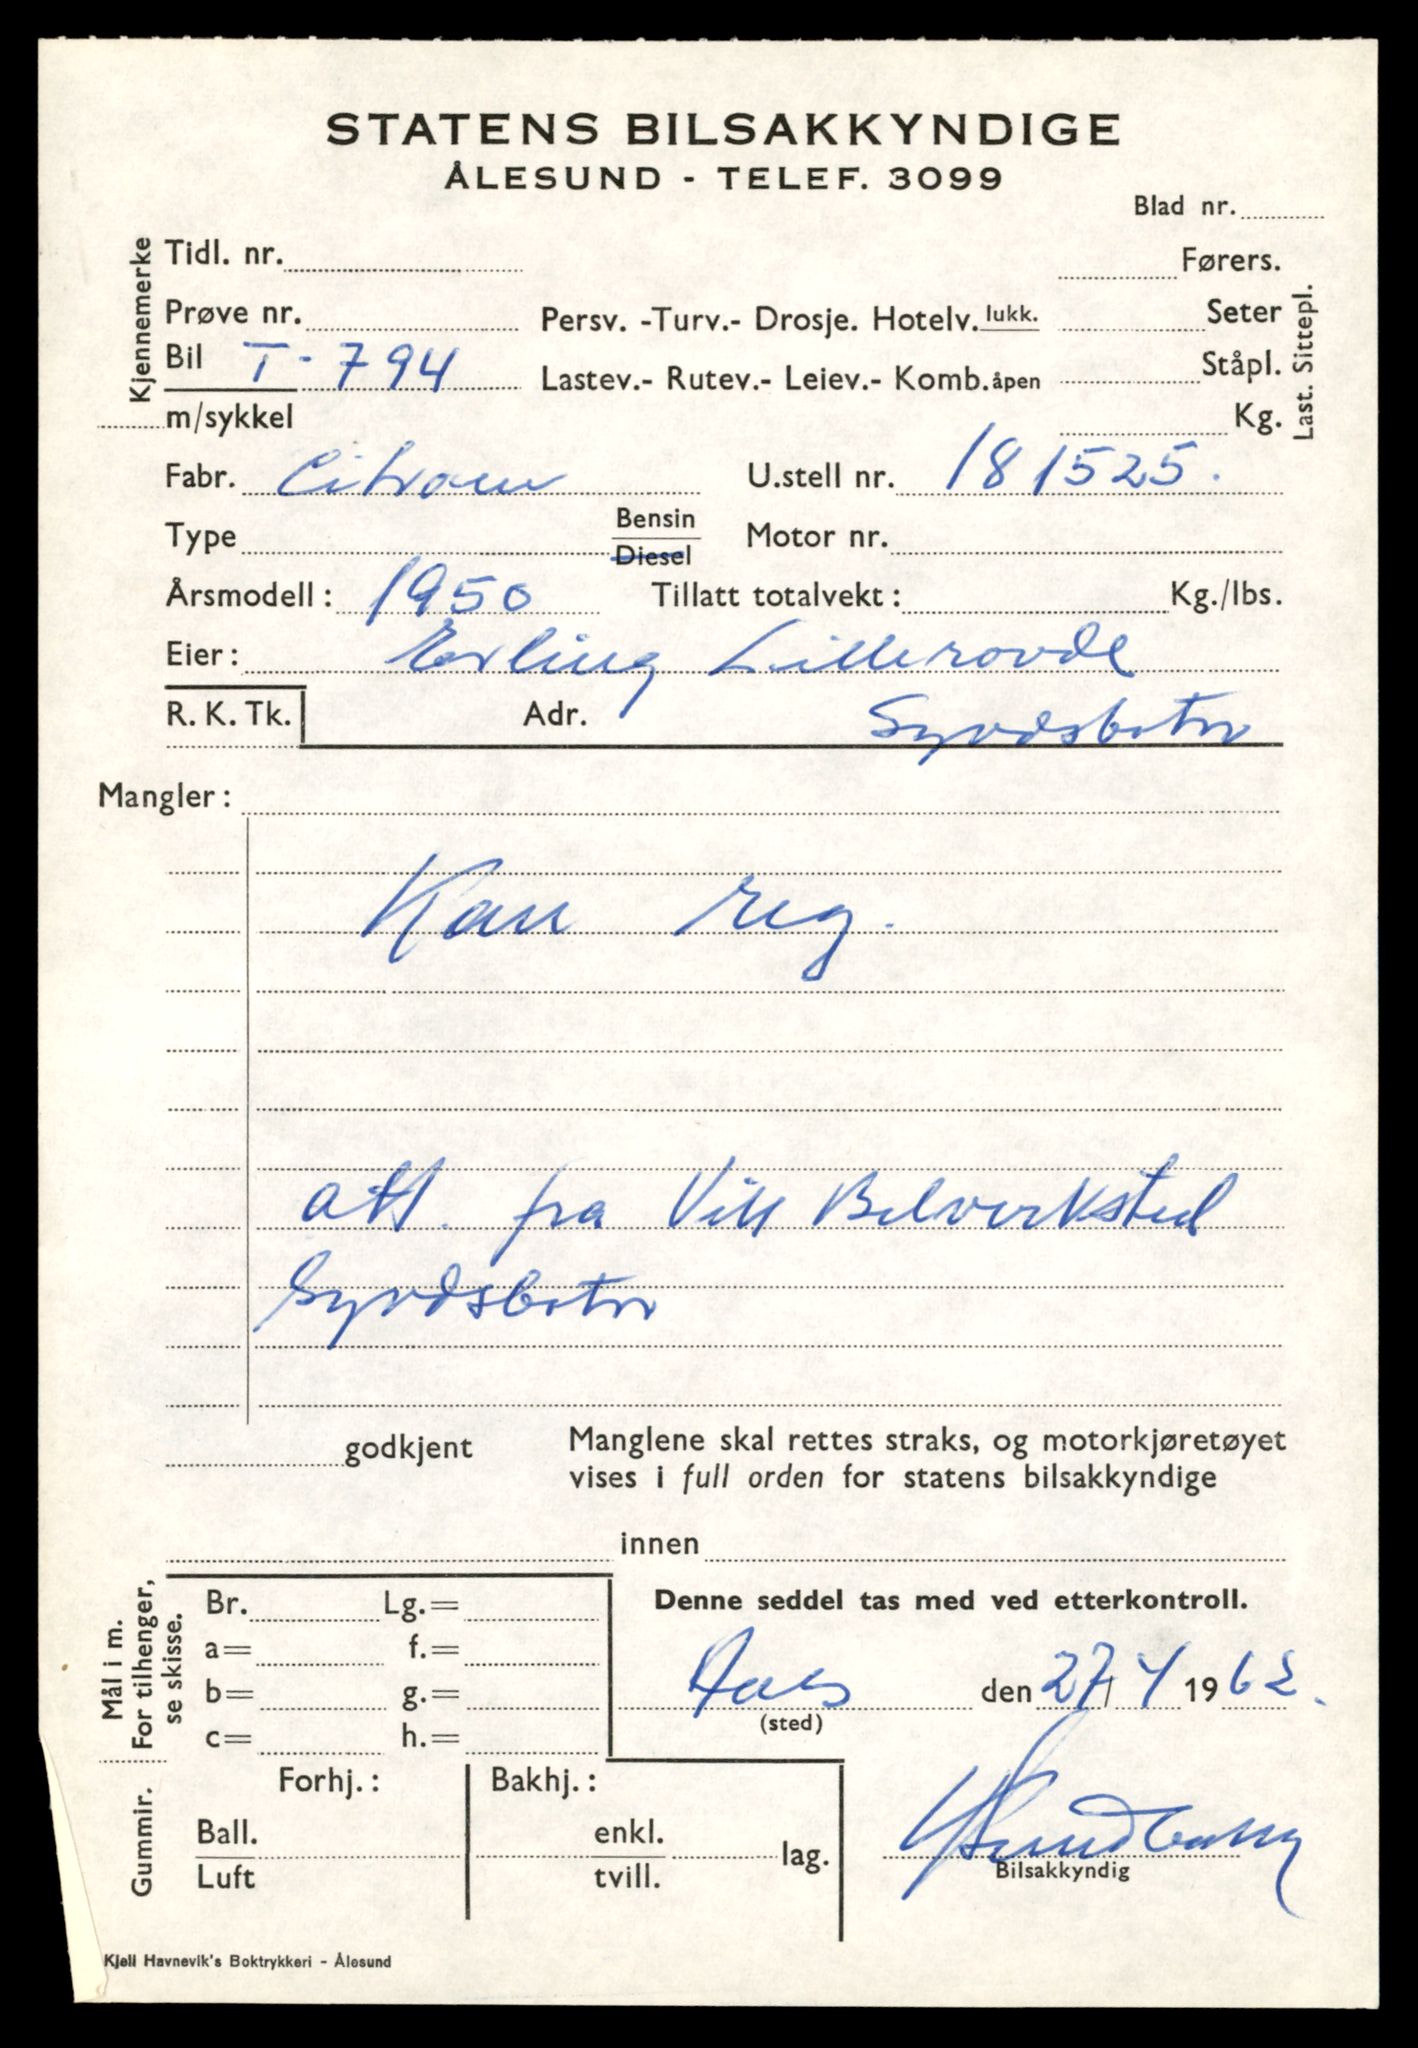 STATENS BILSAKKYNDIGE
ÅLESUND - TELEF. 3099
Blad nr.
Kjennemerke
Tidl. nr.
Førers.
Prøve nr.
Persv. -Turv.- Drosje. Hotelv. lukk.
Seter
Bil T-794
Lastev.- Rutev.- Leiev.- Komb. åpen
Ståpl.
m/sykkel
Kg.
Last. Sittepl.
Fabr. Citroen U.stell nr. 181525.
Type Bensin Motor nr.
Diesel
Årsmodell: 1950 Tillatt totalvekt: Kg./lbs.
Eier: Erling Lillerovde
R. K. Tk. Adr. Syvdsbotn
Mangler:
Kan reg.
att. fra Vik Bilverksted
Syvdsbotn
godkjent Manglene skal rettes straks, og motorkjøretøyet
vises i full orden for statens bilsakkyndige
innen
Mål i m.
For tilhenger,
se skisse.
Br. Lg.=
a= f.=
b= g.=
c= h.=
Denne seddel tas med ved etterkontroll.
den 27/4 1962.
(sted)
Gummir.
Forhj.: Bakhj.:
Ball. enkl.
lag.
Luft tvill.
Bilsakkyndig
Kjell Havnevik's Boktrykkeri - Ålesund